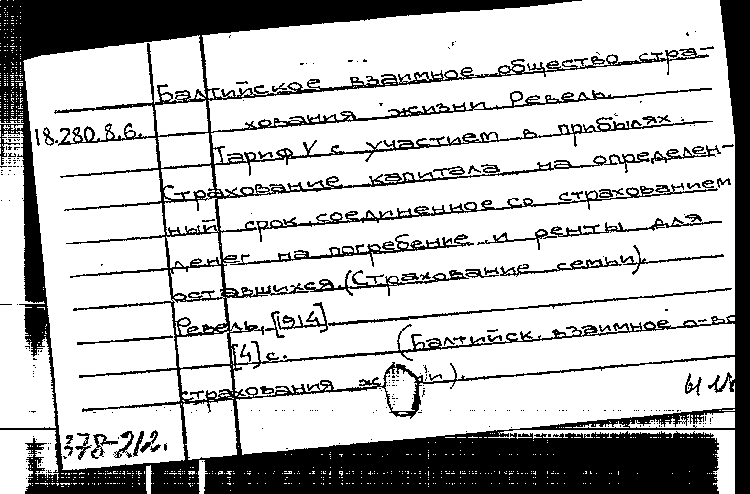 Балтийское взаимное общество стра-
18.280.8.6.
хования жизни. Ревель.
Тариф V с участием в прибылях.
Страхование капитала на определен-
ный срок, соединенное со страхованием
денег на погребение и ренты для
оставшихся. (Страхование семьи).
Ревель, [914]
[4] с. (Балтийск. взаимное о-во
страхования).
378-212.